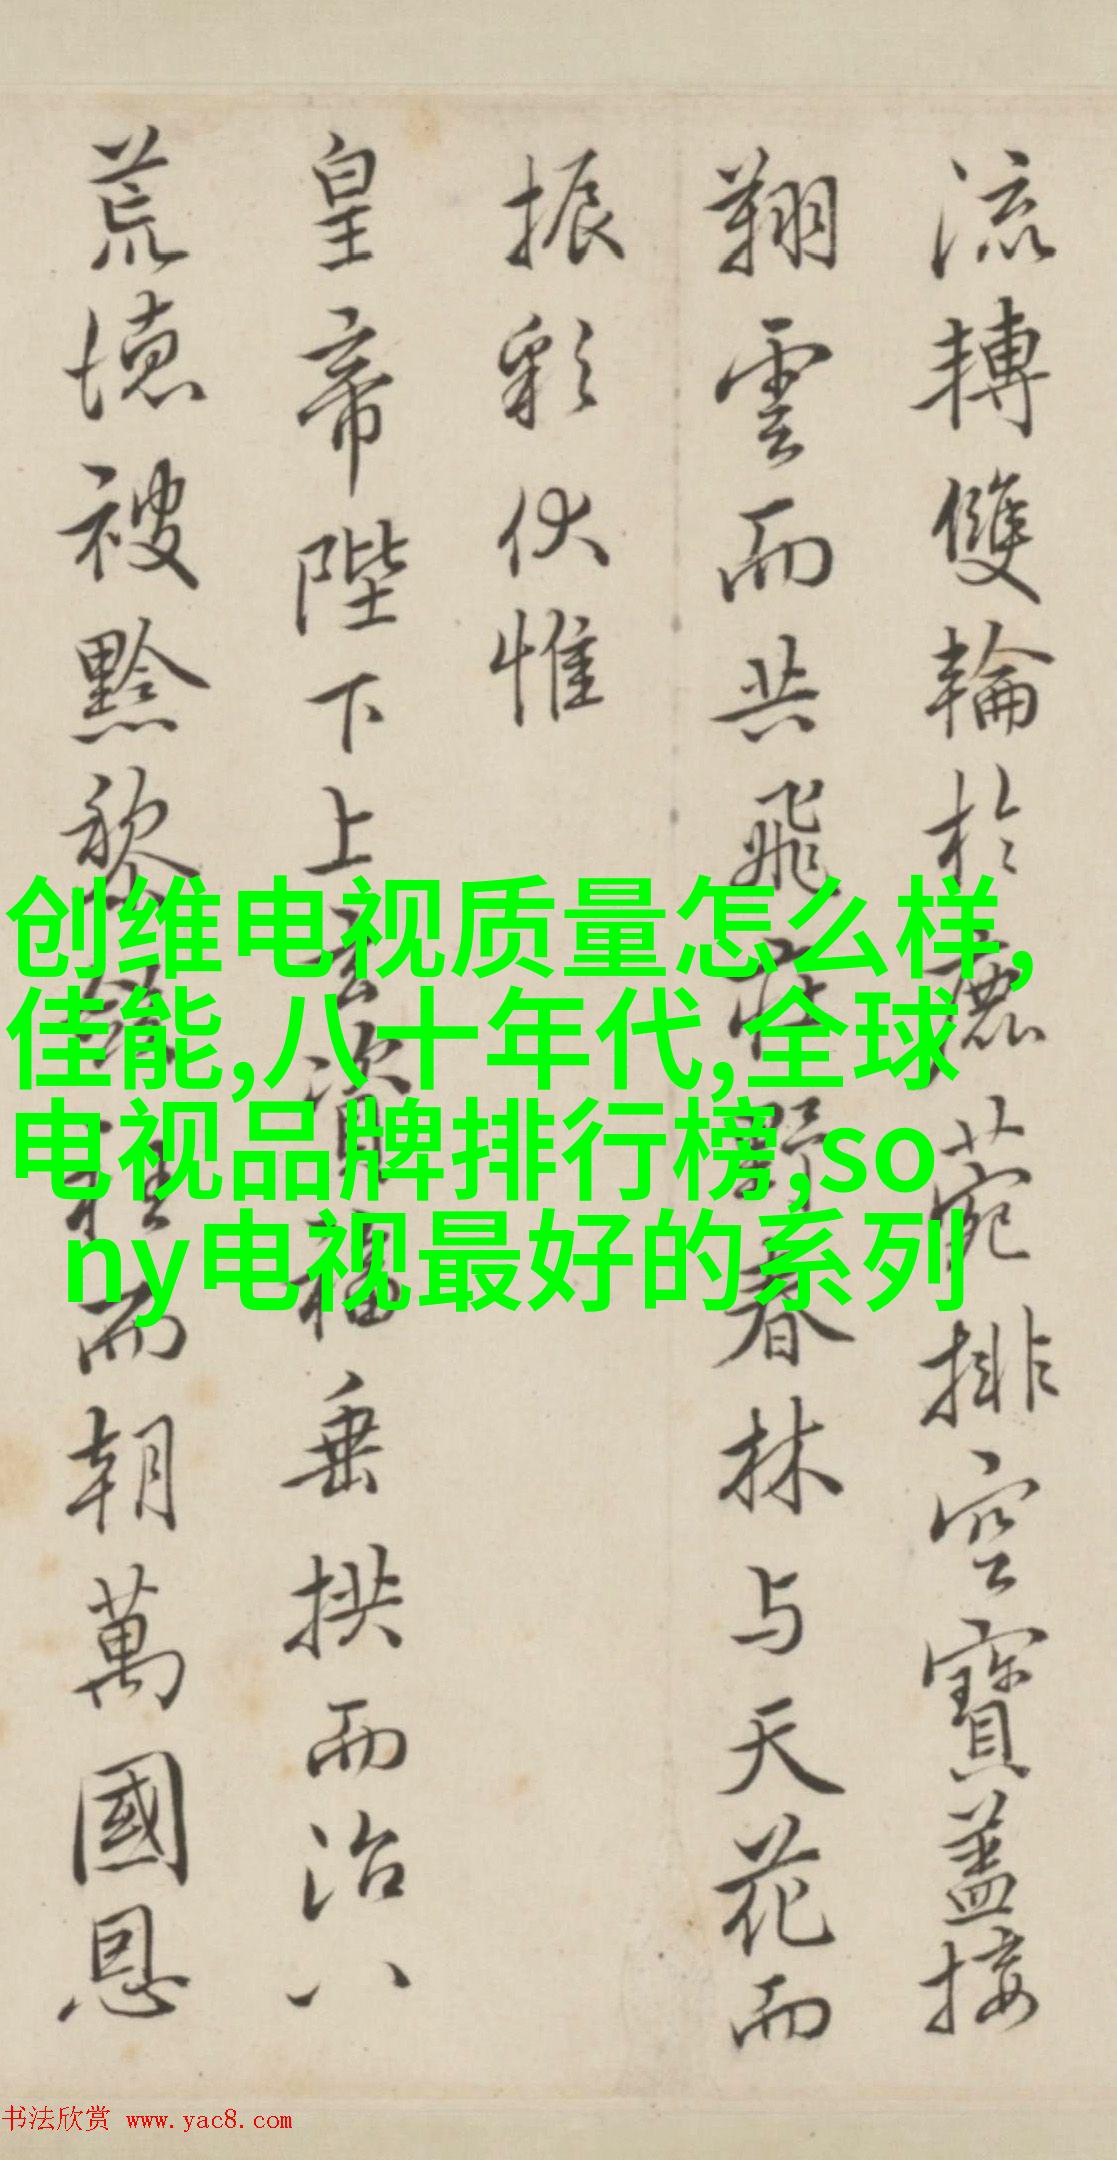 流轉雙輪於鹿苑排空寶蓋接
翔雲而共飛莊野春林与天花而
振彩伏惟
皇帝陛下上玄資福垂拱而治八
荒德被黔黎而朝萬國恩
创维电视质量怎么样,
佳能,八十年代,全球
电视品牌排行榜,so
ny电视最好的系列
书法欣赏 www.yac8.com